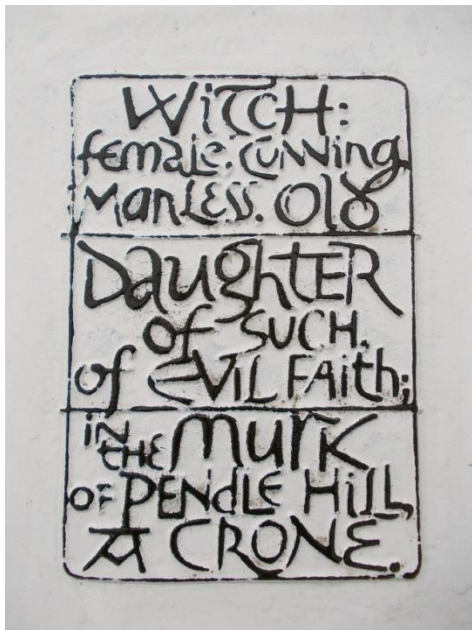 WiTCH:
female. cunning,
Manless. Old
Daughter
of SUCH.
of EVIL FAith;
iN THE Murk
OF PENdLE Hill,
A CRONE.